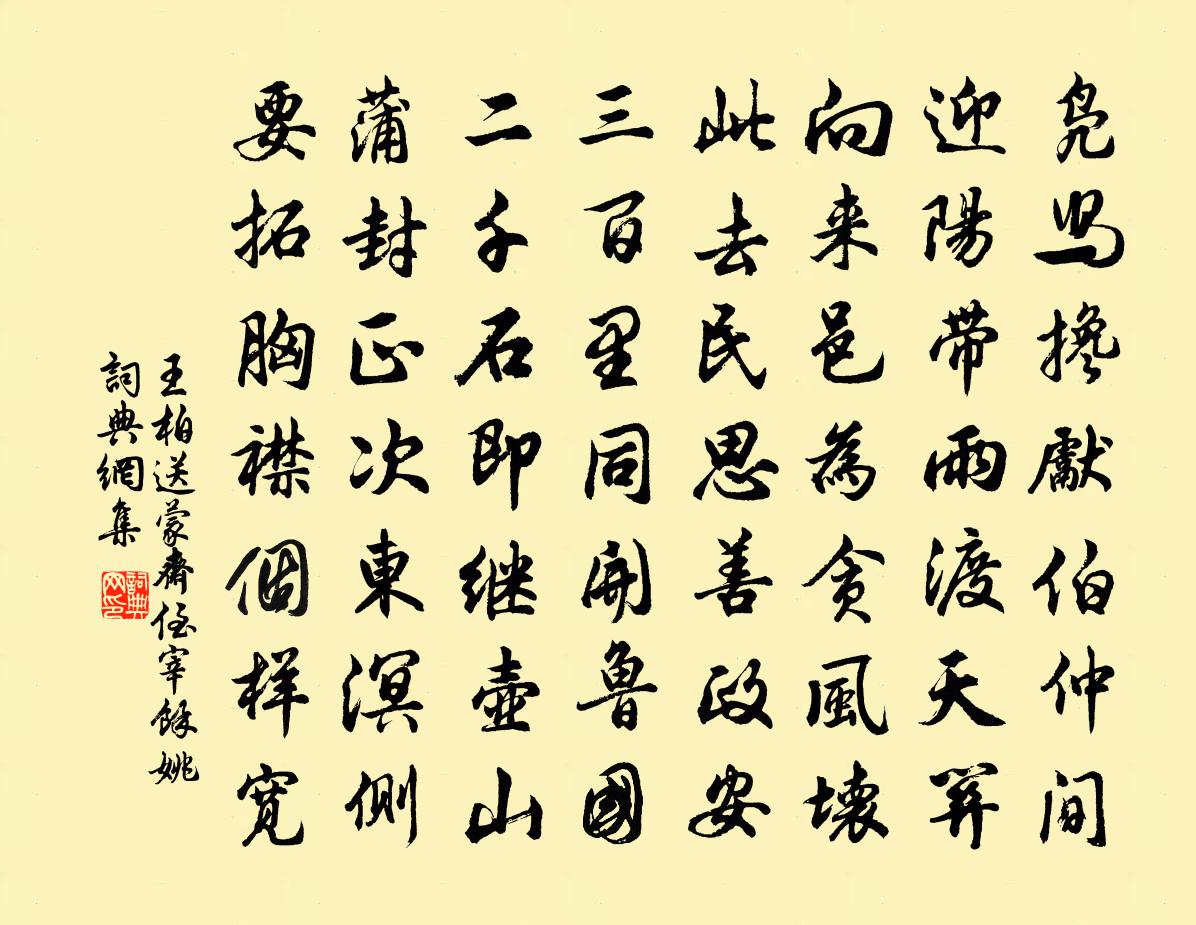 凫舄搀獻伯仲間
迎陽帶雨渡天關
向来邑為貪風壞
此去民思善政安
三百里同開魯國
二千石即继壺山
蒲封正次東溟側
要拓胸襟個样寬
王柏送蒙齋侄宰餘姚
詞典網集
詞典网印